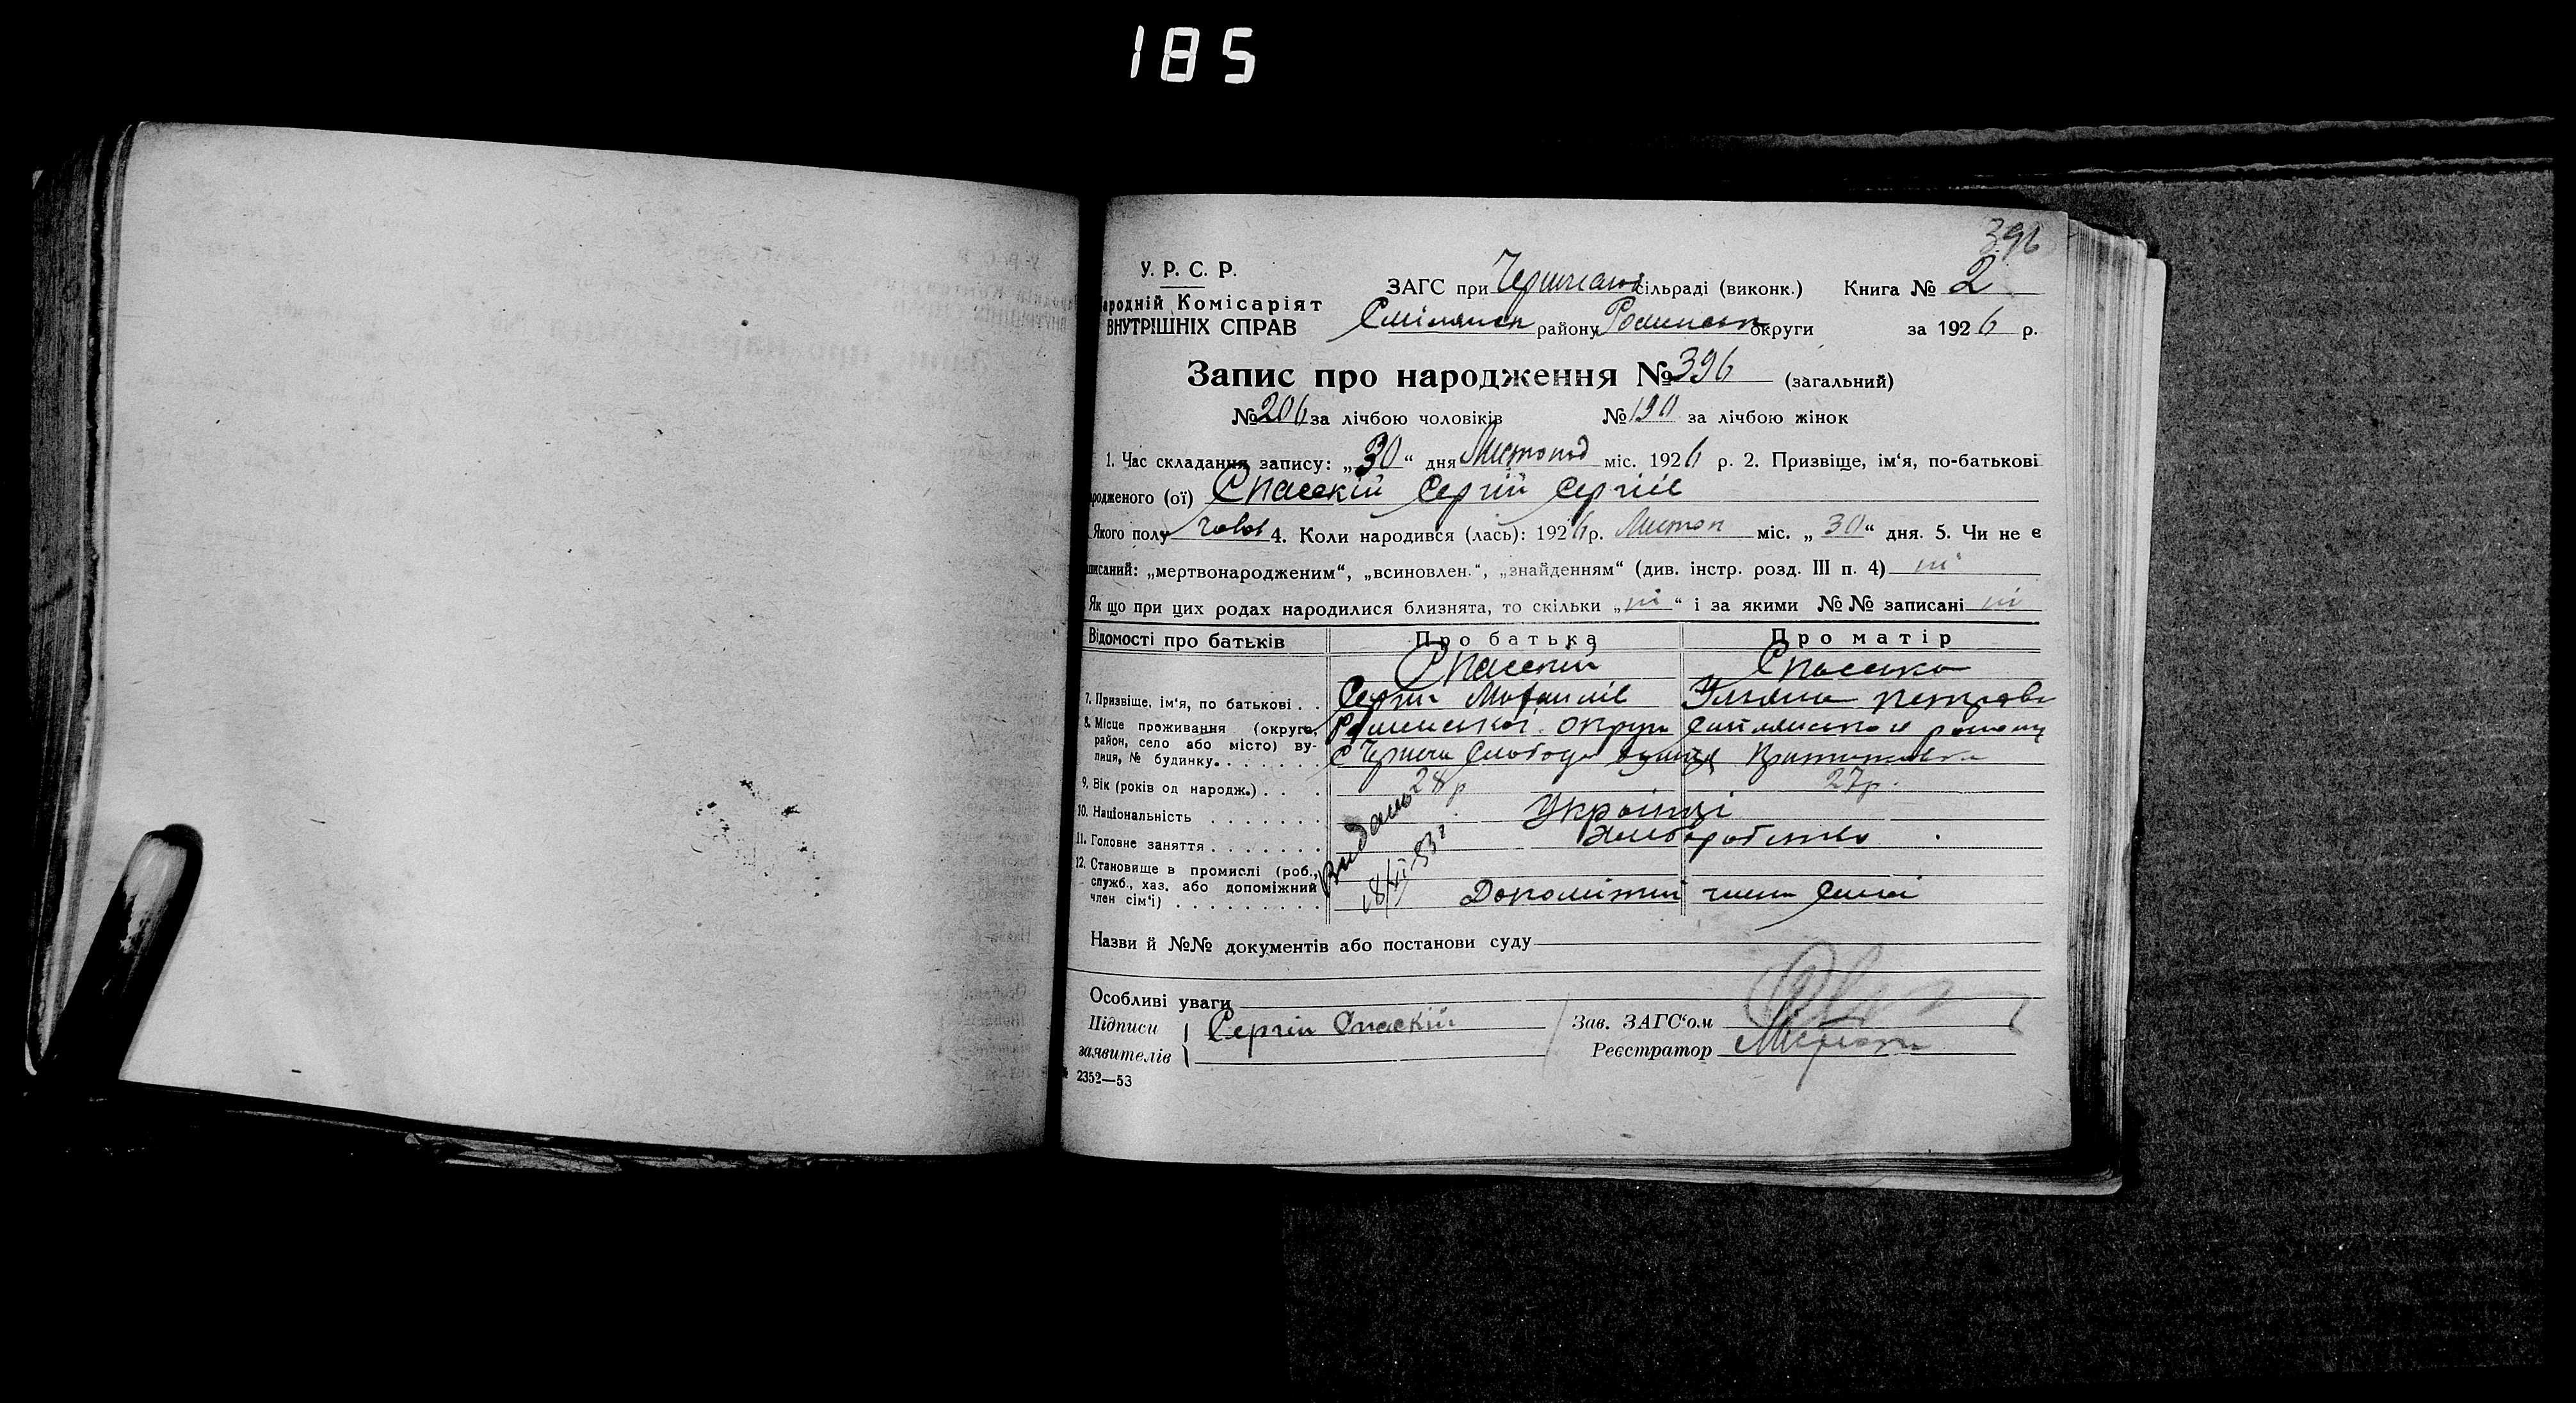 185
396
У. Р. С. Р.
ародній Комісаріят
ВНУТРІШНІХ СПРАВ
ЗАГС при сільраді (виконк.) Книга № 2
Смілянськ району Роменськ округи за 1926 р.
Запис про народження № 396 (загальний)
№ 206 за лічбою чоловіків № 190 за лічбою жінок
1. Час складання запису: „30“ дня Листопад міс. 1926 р. 2. Призвіще, ім‘я, по-батькові
родженого (ої) Спаский Сергій Сергіїв
Якого полу чолов 4. Коли народився (лась): 1926 р. Листоп міс. „30“ дня. 5. Чи не є
писаний: „мертвонародженим“, „всиновлен.“, „знайденням“ (див. інстр. розд. III п. 4) ні
Як що при цих родах народилися близнята, то скільки „ні“ і за якими №№ записані ні
Відомості про батьків Про батька Про матір
Спаский Спаська
7. Призвіще, ім‘я, по батькові . . Сергій Михайлів Уляна Петрова
8. Місце проживання (округа, район, село або місто) вулиця, № будинку. Роменської округи Смілянського району
с Чернеча Слобода вулиця
9. Вік (років од народж.) . . . 28 р 27 р.
10. Національність Українці
11. Головне заняття Хліборобство
12. Становище в промислі (роб., служб., хаз. або допоміжний член сім‘ї) Допоміжний член сімї
Видано
Назви й №№ документів або постанови суду
Особливі уваги
Підписи заявителів Сергій Спаский
Зав. ЗАГС‘ом
Реєстратор
2352—53